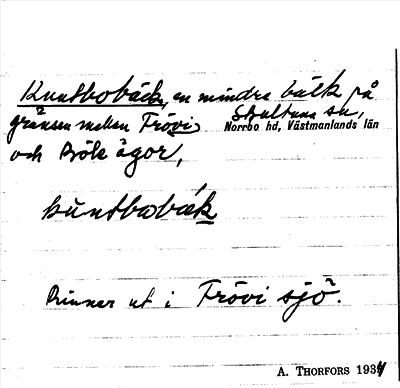 Kuntbobäck, en mindre bäck på
gränsen mellan Frövi
Skultuna sn,
Norrbo hd, Västmanlands län
och Bröle ägor,
kùntbobä́k
Rinner ut i Frövi sjö.
A. THORFORS 1934